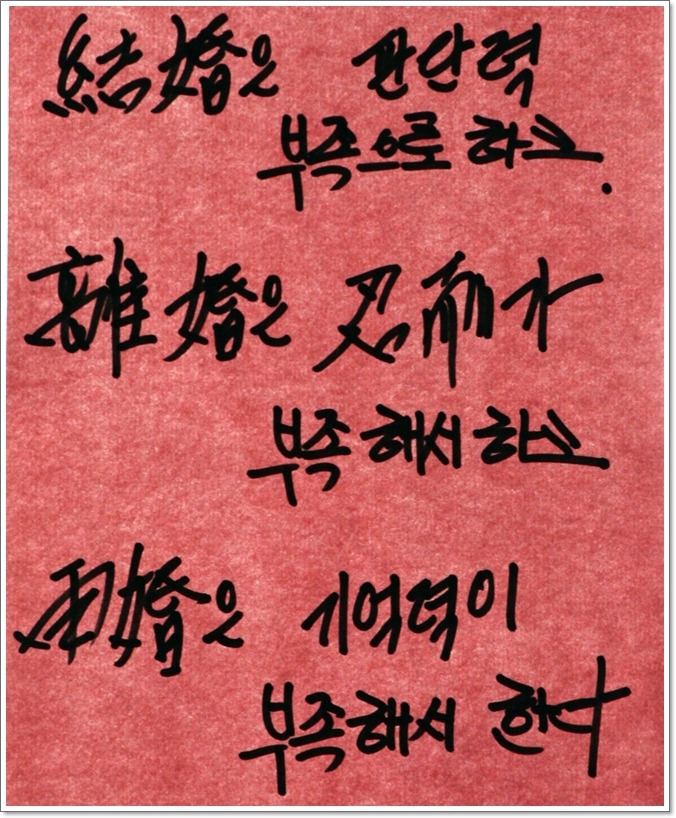 結婚은 판단력
부족으로 하고.
離婚은 忍耐가
부족해서 하고
再婚은 기억력이
부족해서 한다